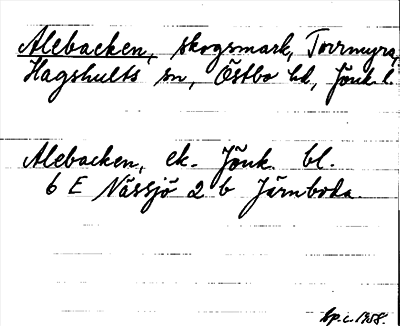 Alebacken, skogsmark, Torrmyra,
Hagshults sn, Östbo hd, Jönk. l.
Alebacken, ek. Jönk. bl.
6 E Nässjö 2 b Järnboda.
1958.